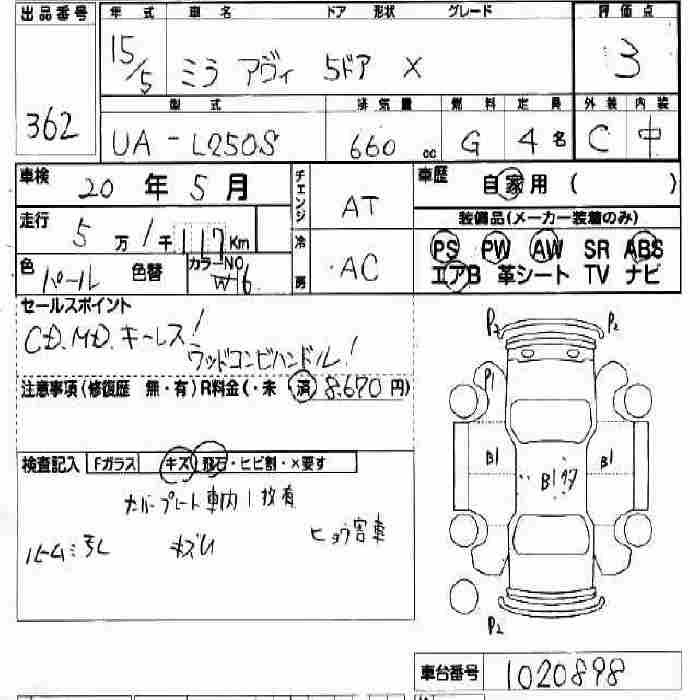 出品番号 年式 車名 ドア 形状 グレード 評価点
362 15/5 ミラ アヴィ 5ドア X 3
型式 排気量 燃料 定員 外装 内装
UA-L250S 660 cc G 4名 C 中
車検 20年5月 チェンジ AT 車歴 自家用( )
走行 5万1千117Km 冷房 AC 装備品(メーカー装着のみ)
PS PW AW SR ABS
色 パール 色替 カラーNO W16 エアB 革シート TV ナビ
セールスポイント
CD.MD.キーレス!
ウッドコンビハンドル!
注意事項(修復歴 無・有)R料金(・未 済 8,670円)
検査記入 Fガラス キズ 飛石・ヒビ割・×要す
ナンバープレート車内1枚有
ルーム汚れ キズU ヒョウ害車
P2 P2
P1
B1 B1多 B1
P2
車台番号 1020898